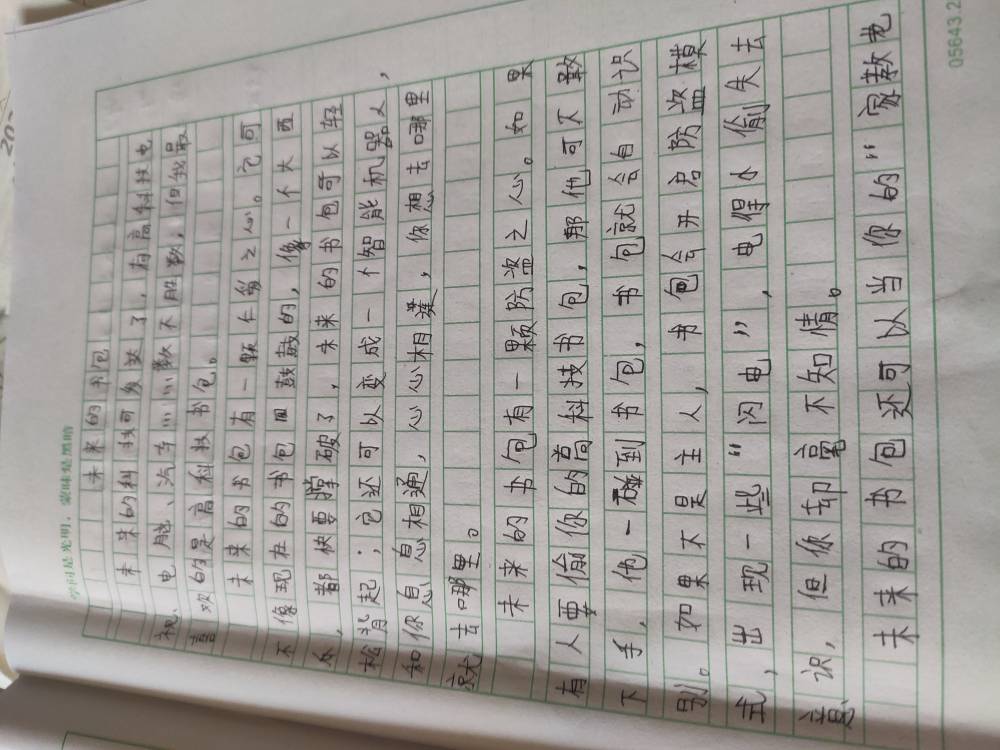 学问是光明，蒙昧是黑暗
未来的书包
未来的科技可多数了，有高科技电
视、电脑、汽车……数不胜数，但我最
喜欢的是高科技书包。
未来的书包有一颗仁爱之心。它可
不像现在的书包鼓鼓的，像一个大西
瓜，都快要撑破了，未来的书包可以轻
松背起；它还可以变成一个智能机器人，
和你息息相通，心心相连，你想去哪里
就去哪里。
未来的书包有一颗防盗之心。如果
有人要偷你的高科技书包，那他可不敢
下手，他一碰到书包，书包就会自动识
别。如果不是主人，书包会开启防盗模
式，出现一些“闪电”，电得小偷失去
意识，但你却毫不知情。
未来的书包还可以当你的“家教老
05643.2